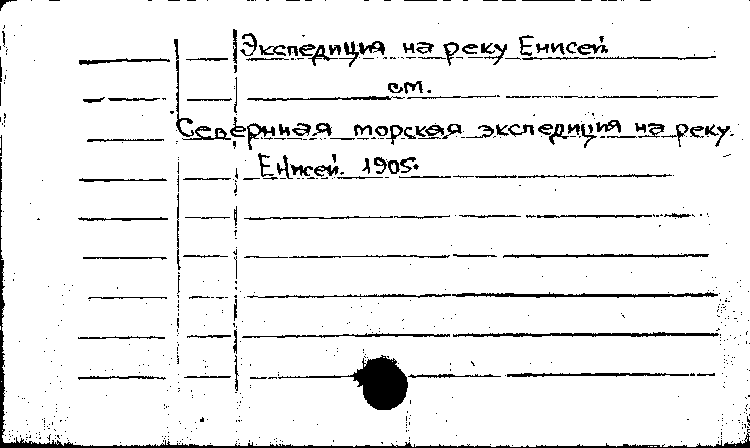 Экспедиция на реку Енисей
см.
Северная морская экспедиция на реку
Енисей. 1905.